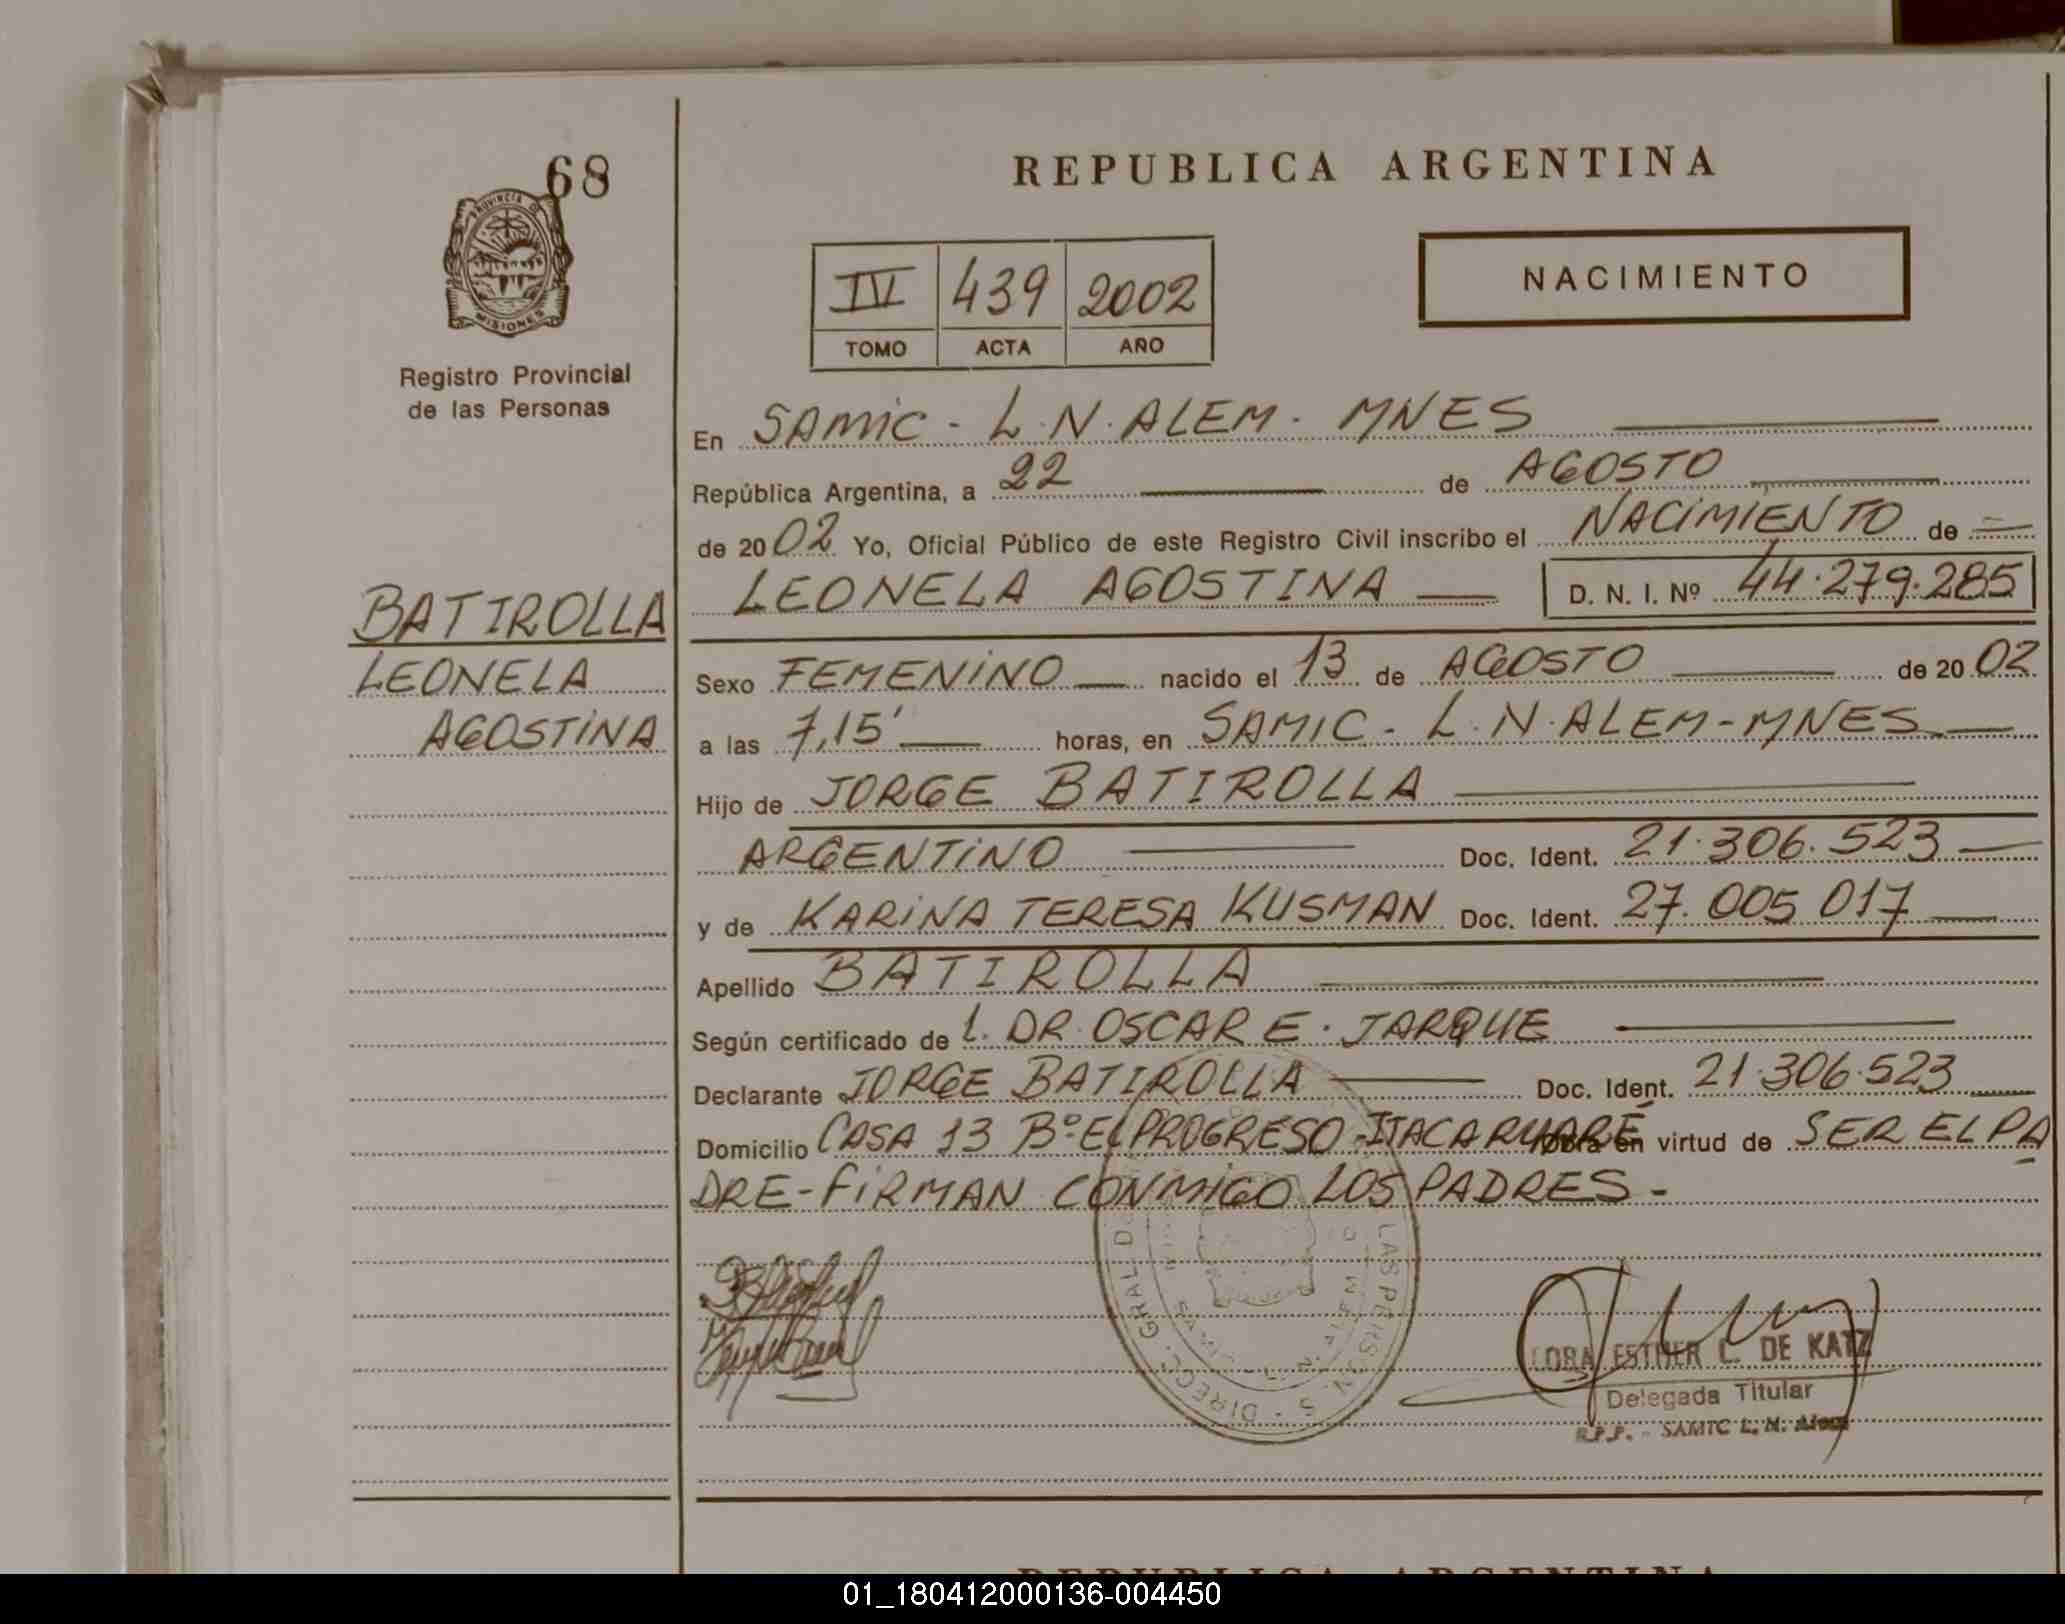 68
PROVINCIA DE
MISIONES
Registro Provincial
de las Personas
BATIROLLA
LEONELA
AGOSTINA
REPUBLICA ARGENTINA
IV 439 2002
TOMO ACTA AÑO
NACIMIENTO
En SAMIC - L.N. ALEM - MNES
República Argentina, a 22 de AGOSTO
de 2002 Yo, Oficial Público de este Registro Civil inscribo el NACIMIENTO de
LEONELA AGOSTINA D. N. I. Nº 44.279.285
Sexo FEMENINO nacido el 13 de AGOSTO de 2002
a las 7,15' horas, en SAMIC - L.N. ALEM - MNES
Hijo de JORGE BATIROLLA
ARGENTINO Doc. Ident. 21.306.523
y de KARINA TERESA KUSMAN Doc. Ident. 27.005 017
Apellido BATIROLLA
Según certificado de l. DR. OSCAR E. JARQUE
Declarante JORGE BATIROLLA Doc. Ident. 21.306.523
Domicilio CASA 13 Bº EL PROGRESO - ITACARUARÉ Obra en virtud de SER EL PA
DRE - FIRMAN CONMIGO LOS PADRES -
DORA ESTHER C. DE KATZ
Delegada Titular
R.P.P. - SAMIC L. N. Alem
REPUBLICA ARGENTINA
01_180412000136-004450